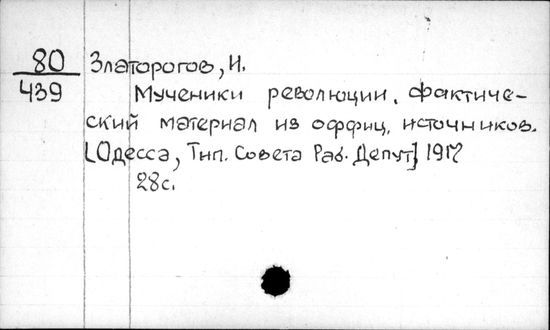 80 Златорогов, И.
439 Мученики революции. Фактиче-
ский материал из оффиц. источников.
[Одесса, Тип. Совета Раб. Депут] 1917
28с.